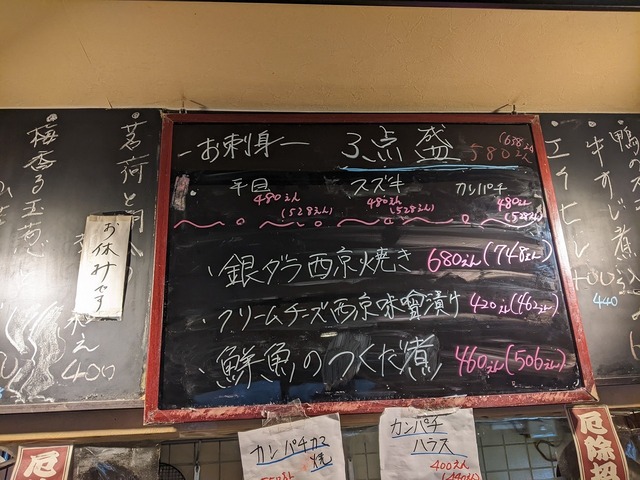 梅香る玉ねぎ
茗荷と
お休みです
和え
400
ーお刺身ー 3点盛 580えん (638えん)
平目 スズキ カンパチ
480えん (528えん) 480えん (528えん) 480えん (528えん)
・銀ダラ西京焼き 680えん (748えん)
・クリームチーズ西京味噌漬け 420えん (462えん)
・鮮魚のつくだ煮 460えん (506えん)
鴨
牛すじ煮込
エイヒレ
400
440
厄
カンパチカマ焼
カンパチ
ハラス
400えん
(440えん)
厄除招